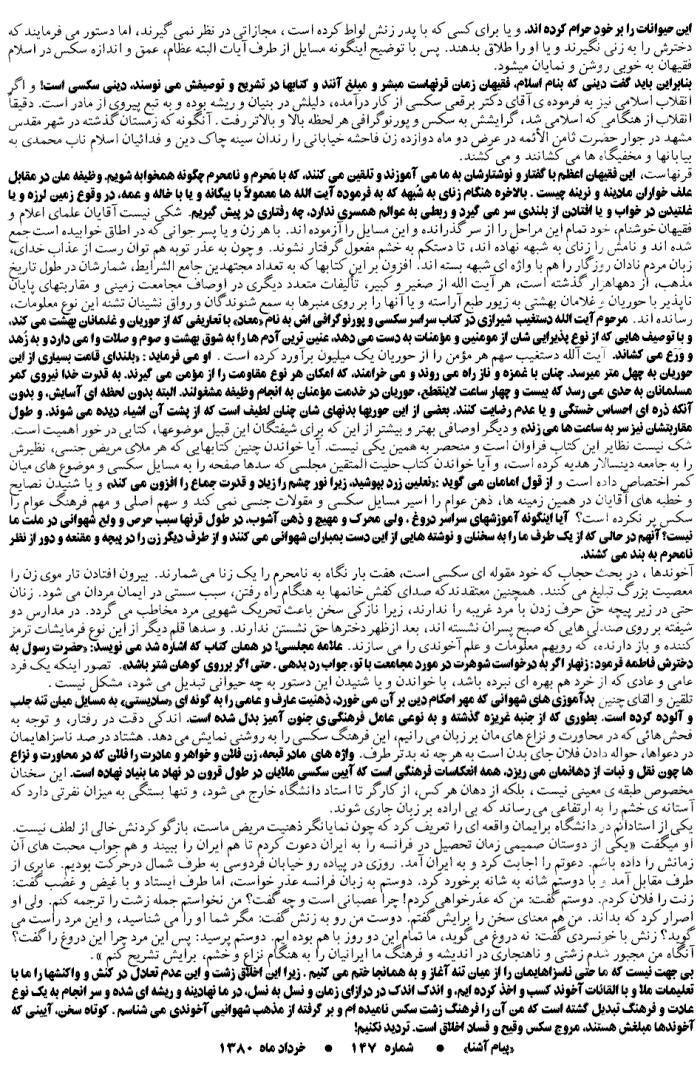 این حیوانات را بر خود حرام کرده اند. و یا برای کسی که با پدر زنش لواط کرده است، مجازاتی در نظر نمی گیرند، اما دستور می فرمایند که
دخترش را به زنی نگیرند و یا او را طلاق بدهند. پس با توضیح اینگونه مسایل از طرف آیات البته عظام، عمق و اندازه سکس در اسلام
فقیهان به خوبی روشن و نمایان میشود.
بنابراین باید گفت دینی که بنام اسلام، فقیهان زمان قرنهاست مبشر و مبلغ آنند و کتابها در تشریح و توصیفش می نوسند، دینی سکسی است! و اگر
انقلاب اسلامی نیز به فرموده ی آقای دکتر برقعی سکسی از کار درآمده، دلیلش در بنیان و ریشه بوده و به تبع پیروی از مادر است. دقیقاً
انقلاب از هنگامی که اسلامی شد، گرایشش به سکس و پورنوگرافی هر لحظه بالا و بالاتر رفت. آنگونه که زمستان گذشته در شهر مقدس
مشهد در جوار حضرت ثامن الأئمه در عرض دو ماه دوازده زن فاحشه خیابانی را رندان سینه چاک دین و فدائیان اسلام ناب محمدی به
بیابانها و مخفیگاه ها می کشانند و می کشند.
قرنهاست، این فقیهان اعظم با گفتار و نوشتارشان به ما می آموزند و تلقین می کنند، که با مَحرم و نامحرم چگونه همخوابه شویم. وظیفه مان در مقابل
علف خواران مادینه و نرینه چیست. بالاخره هنگام زنای به شبهه که به فرموده آیت الله ها معمولاً با بیگانه و یا با خاله و عمه، در وقوع زمین لرزه و یا
غلتیدن در خواب و یا افتادن از بلندی سر می گیرد و ربطی به عوالم همسری ندارد، چه رفتاری در پیش گیریم. شکی نیست آقایان علمای اعلام و
فقیهان خوشنام، خود تمام این مراحل را از سر گذرانده و این مسایل را آزموده اند. با هر زن و یا پسر جوانی که در اطاق خوابیده است جمع
شده اند و نامش را زنای به شبهه نهاده اند، تا دستکم به خشم مفعول گرفتار نشوند. و چون به عذر توبه هم توان رست از عذاب خدای،
زبان مردم نادان روزگار را هم با واژه ای شبهه بسته اند. افزون بر این کتابها که به تعداد مجتهدین جامع الشرایط، شمارشان در طول تاریخ
مذهب، از دهها هزار گذشته است، هر آیت الله از صغیر و کبیر، تألیفات متعدد دیگری در اوصاف مجامعت زمینی و مقاربتهای پایان
ناپذیر با حوریان و غلامان بهشتی به زیور طبع آراسته و یا آنها را بر روی منبرها به سمع شنوندگان و رواق نشینان تشنه این نوع معلومات،
رسانده اند. مرحوم آیت الله دستغیب شیرازی در کتاب سراسر سکسی و پورنوگرافی اش به نام «معاد» با تعاریفی که از حوریان و غلمانان بهشت می کند،
و با توصیف هایی که از نوع پذیرایی شان از مومنین و مؤمنات به دست می دهد، عنین ترین آدم ها را به شوق بهشت و صوم و صلات وا می دارد و به زُهد
و ورَع می کشاند. آیت الله دستغیب سهم هر مؤمن را از حوریان یک میلیون برآورد کرده است. او می فرماید: «بلندای قامت بسیاری از این
حوریان به چهل متر میرسد. چنان با غمزه و ناز راه می روند و می خرامند، که امکان هر نوع مقاومت را از مؤمن می گیرند. به قدرت خدا نیروی کمر
مسلمانان به حدی می رسد که بیست و چهار ساعت لاینقطع، حوریان در خدمت مؤمنان به انجام وظیفه مشغولند. البته بدون لحظه ای آسایش، و بدون
آنکه ذره ای احساس خستگی و یا عدم رضایت کنند. بعضی از این حوریها بدنهای شان چنان لطیف است که از پشت آن اشیاء دیده می شوند. و طول
مقاربتشان نیز سر به ساعت ها می زند» و دیگر اوصافی بهتر و بیشتر از این که برای شیفتگان این قبیل موضوعها، کتابی در خور اهمیت است.
شک نیست نظایر این کتاب فراوان است و منحصر به همین یکی نیست. آیا خواندن چنین کتابهایی که هر ملای مریض جنسی، نظیرش
را به جامعه دینسالار هدیه کرده است، و آیا خواندن کتاب حلیت المتقین مجلسی که سدها صفحه را به مسایل سکسی و موضوع های میان
کمر اختصاص داده است و از قول امامان می گوید: «نعلین زرد بپوشید، زیرا نور چشم را زیاد و قدرت جماع را افزون می کند» و یا شنیدن نصایح
و خطبه های آقایان در همین زمینه ها، ذهن عوام را اسیر مسایل سکسی و مقولات جنسی نمی کند و سهم اصلی و مهم فرهنگ عوام را
سکس پر نکرده است؟ آیا اینگونه آموزشهای سراسر دروغ، ولی محرک و مهیج و ذهن آشوب، در طول قرنها سبب حرص و ولع شهوانی در ملت ما
نیست؟ آنهم در حالی که از یک طرف ما را به سخنان و نوشته هایی از این دست بمباران شهوانی می کنند و از طرف دیگر زن را در پیچه و مقنعه و دور از نظر
نامحرم به بند می کشند.
آخوندها، در بحث حجاب که خود مقوله ای سکسی است، هفت بار نگاه به نامحرم را یک زنا می شمارند. بیرون افتادن تار موی زن را
معصیت بزرگ تبلیغ می کنند. همچنین معتقدند که صدای کفش خانمها به هنگام راه رفتن، سبب سستی در ایمان مردان می شود. زنان
حتی در زیر پیچه حق حرف زدن با مرد غریبه را ندارند، زیرا نازکی سخن باعث تحریک شهویی مرد مخاطب می گردد. در مدارس دو
شیفته بر روی صندلی هایی که صبح پسران نشسته اند، بعد ازظهر دخترها حق نشستن ندارند. و سدها قلم دیگر از این نوع فرمایشات ترمز
کننده و باز دارنده، که رویهم معلومات و علم آخوندی را می سازند. علامه مجلسی! در همان کتاب که اشاره شد می نویسد: «حضرت رسول به
دخترش فاطمه فرمود: زنهار اگر به درخواست شوهرت در مورد مجامعت با تو، جواب رد بدهی. حتی اگر برروی کوهان شتر باشد». تصور اینکه یک فرد
عامی و عادی که از خرد هم بهره ای نبرده باشد، با خواندن و یا شنیدن این دستور به چه حیوانی تبدیل می شود، مشکل نیست.
تلقین و القای چنین بدآموزی های شهوانی که مهر احکام دین بر آن می خورد، ذهنیت عارف و عامی را به گونه ای «سادیستی» به مسایل میان تنه جلب
و آلوده کرده است. بطوری که از جنبه غریزه گذشته و به نوعی عامل فرهنگی جنون آمیز بدل شده است. اندکی دقت در رفتار، و توجه به
فحش هائی که در محاورت و نزاع های مان بر زبان می رانیم، این فرهنگ سکسی را به روشنی نمایش می دهد. هشتاد در صد ناسزاهایمان
در دعواها، حواله دادن فلان جای بدن است به هر چه نه بدتر طرف. واژه های مادر قبحه، زن فلان و خواهر و مادرت را فلان که در محاورت و نزاع
ها چون نقل و نبات از دهانمان می ریزد، همه انعکاسات فرهنگی است که آیین سکسی ملایان در طول قرون در نهاد ما بنیاد نهاده است. این سخنان
مخصوص طبقه ی معینی نیست، بلکه از دهان هر کس، از کارگر تا استاد دانشگاه خارج می شود، و تنها بستگی به میزان نفرتی دارد که
آستانه ی خشم را به ارتفاعی می رساند که بی اراده بر زبان جاری شوند.
یکی از استادانم در دانشگاه برایمان واقعه ای را تعریف کرد که چون نمایانگر ذهنیت مریض ماست، بازگو کردنش خالی از لطف نیست.
او میگفت «یکی از دوستان صمیمی زمان تحصیل در فرانسه را به ایران دعوت کردم تا هم ایران را ببیند و هم جواب محبت های آن
زمانش را داده باشم. دعوتم را اجابت کرد و به ایران آمد. روزی در پیاده رو خیابان فردوسی به طرف شمال درحرکت بودیم. عابری از
طرف مقابل آمد و با دوستم شانه به شانه برخورد کرد. دوستم به زبان فرانسه عذر خواست، اما طرف ایستاد و با غیض و غضب گفت:
زنت را فلان کردم. دوستم گفت: من که عذرخواهی کردم! چرا عصبانی است و چه گفت؟ من نخواستم جمله زشت را ترجمه کنم. ولی او
اصرار کرد که بداند. من هم معنای سخن را برایش گفتم. دوست من رو به زنش گفت: مگر شما او را می شناسید، و این مرد راست می
گوید؟ زنش با خونسردی گفت: نه دروغ می گوید، ما تمام این دو روز با هم بوده ایم. دوستم پرسید: پس این مرد چرا این دروغ را گفت؟
آنگاه من مجبور شدم زشتی و ناهنجاری در اندیشه و فرهنگ ما ایرانیان را به هنگام نزاع و خشم، برایش تشریح کنم».
بی جهت نیست که ما حتی ناسزاهایمان را از میان تنه آغاز و به همانجا ختم می کنیم. زیرا این اخلاق زشت و این عدم تعادل در کنش و واکنشها را ما با
تعلیمات ملا و با القائات آخوند کسب و اخذ کرده ایم، و اندک اندک در درازای زمان و نسل به نسل، در ما نهادینه و ریشه ای شده و سر انجام به یک نوع
عادت و فرهنگ تبدیل گشته است که من آن را فرهنگ زشت سکس نامیده ام و بر گرفته از مذهب شهوانیی آخوندی می شناسم. کوتاه سخن، آیینی که
آخوندها مبلغش هستند، مروج سکس وقیح و فساد اخلاق است. تردید نکنیم!
«پیام آشنا» • شماره ۱۴۷ • خرداد ماه ۱۳۸۰